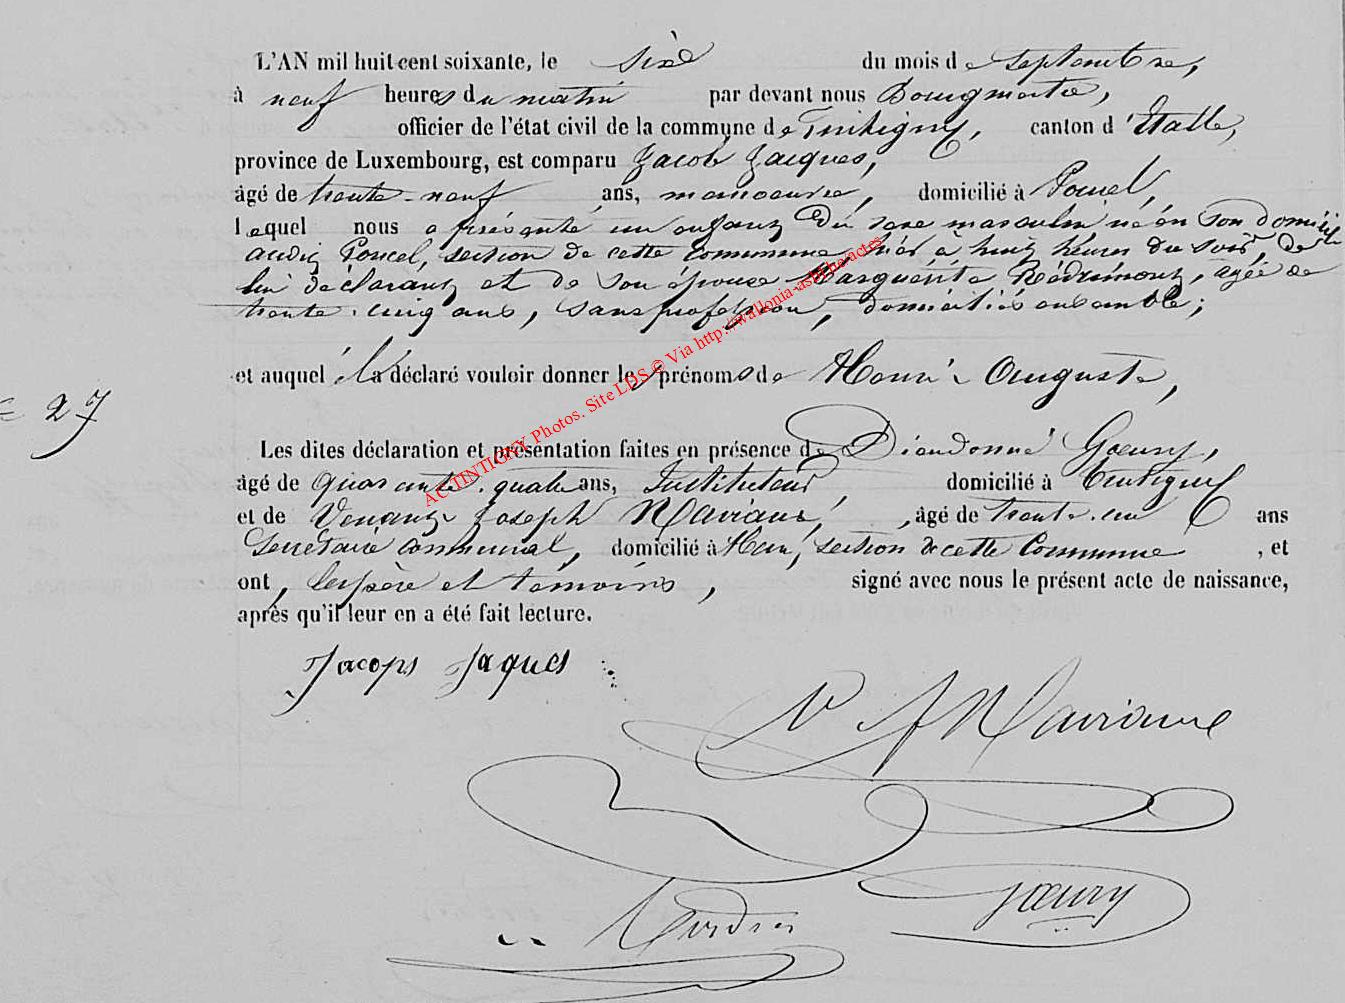 L'AN mil huit cent soixante, le six du mois de septembre,
à neuf heures du matin par devant nous Bourgmestre,
officier de l'état civil de la commune de Tintigny, canton d'Etalle,
province de Luxembourg, est comparu Jacob Jacques,
âgé de trente-neuf ans, manoeuvre, domicilié à Poncel,
lequel nous a présenté un enfant du sexe masculin, né en son domicile
audit Poncel, section de cette commune, hier à huit heures du soir, de
lui déclarant et de son épouse Marguerite, agée de
trente-cinq ans, sans profession, domiciliés ensemble;
et auquel il a déclaré vouloir donner les prénoms de Henri-Auguste,
27
Les dites déclaration et présentation faites en présence de Dieudonné Goeury,
âgé de quarante-quatre ans, Instituteur, domicilié à Tintigny
et de Venant-Joseph Maviane, âgé de trente-un ans
Secrétaire communal, domicilié à Han, section de cette Commune, et
ont, les père et témoins, signé avec nous le présent acte de naissance,
après qu'il leur en a été fait lecture.
Jacops Jaques
V J Maviane
Goeury
ACTINTIGNY Photos. Site LDS © Via http://wallonia-asbl.be/actes